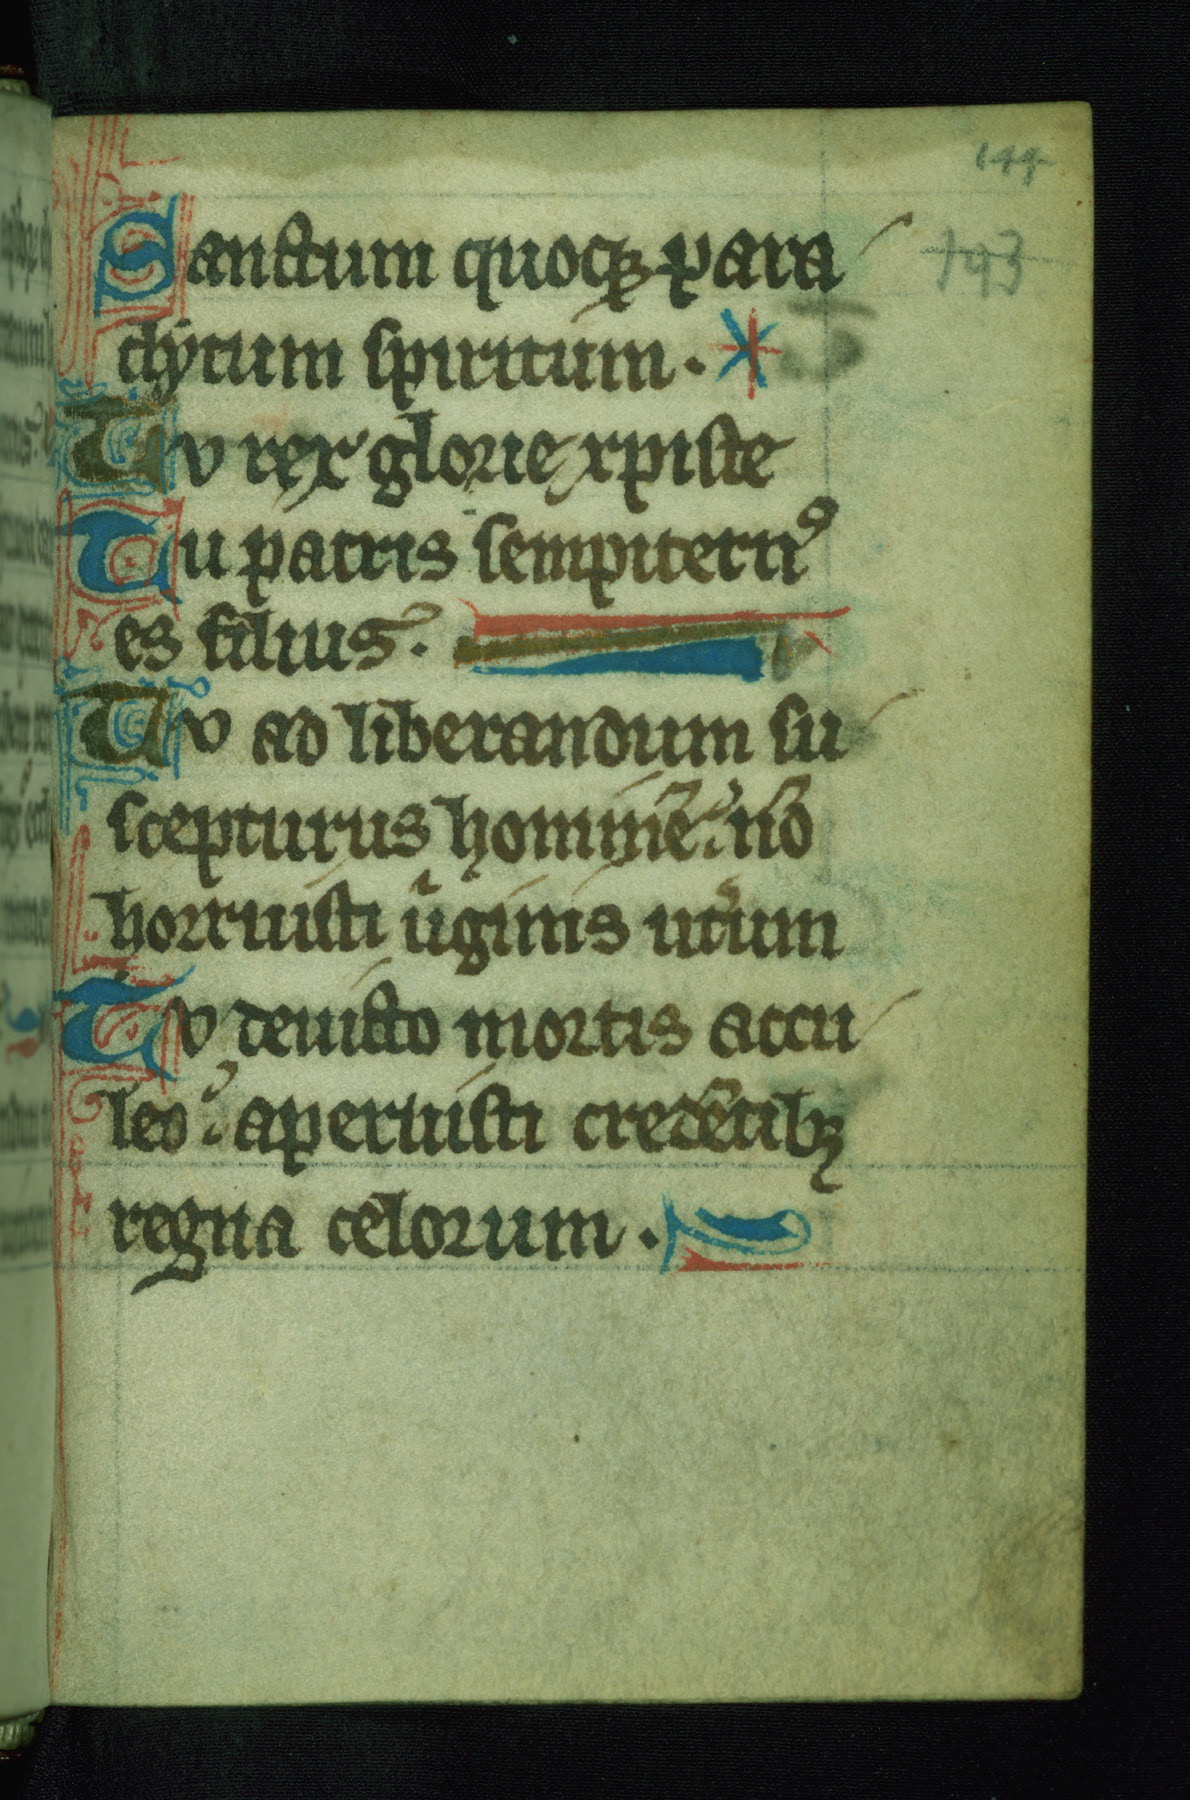 144
Sanctum quoqꝫ para
143
clytum spiritum.
Tv rex glorie xpiste
Tu patris sempiternꝰ
es filius.
Tv ad liberandum su
scepturus hominē nō
horruisti uͥginis uterum
Tv deuicto mortis accu
leo aperuisti credētibꝫ
regna celorum.